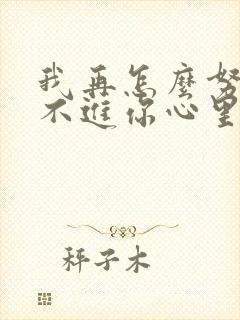 我再怎麼努
不進你心里
秤子木